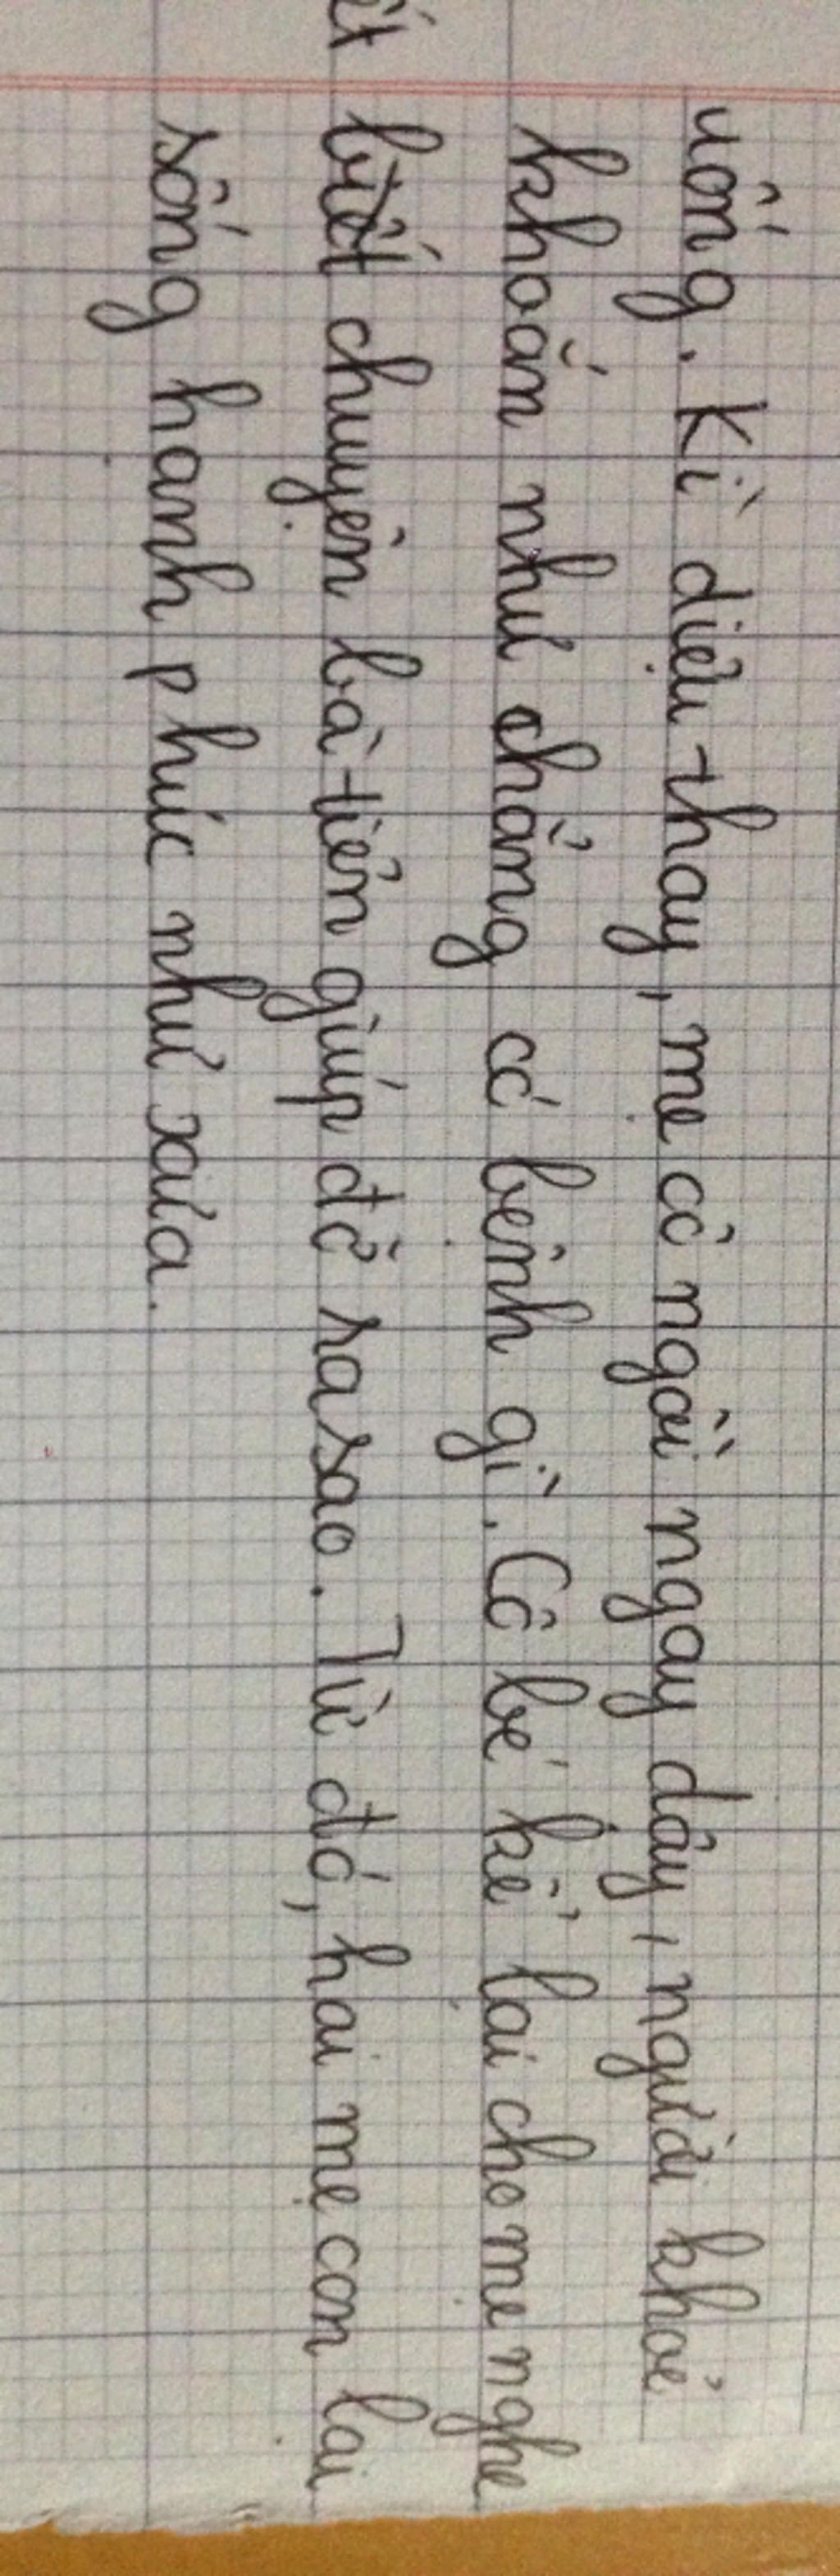 uống. Kì diệu thay, mẹ cô ngồi ngay dậy, người khoẻ
khoắn như chẳng có bệnh gì. Cô bé kể lại cho mẹ nghe
biết chuyện bà tiên giúp đỡ ra sao. Từ đó, hai mẹ con lại
sống hạnh phúc như xưa.